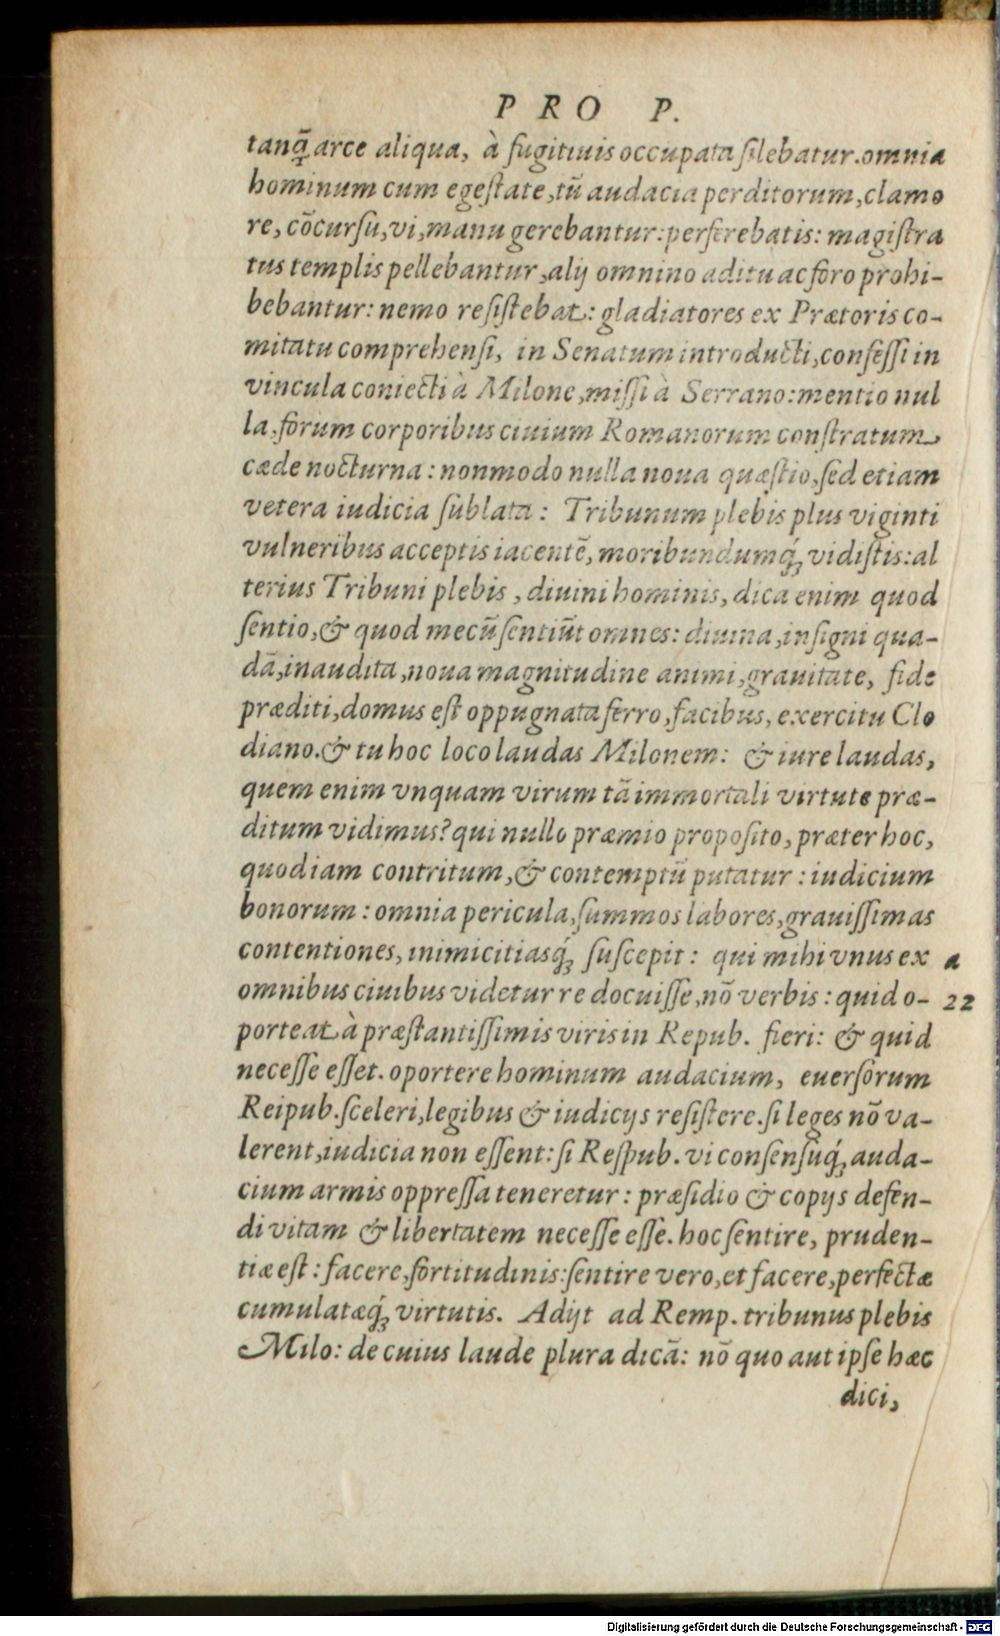 PRO P.
tanꝗ̃ arce aliqua, à fugitiuis occupata ſilebatur. omnia
hominum cum egeſtate, tũ audacia perditorum, clamo
re, cõcurſu, vi, manu gerebantur: perferebatis: magiſtra
tus templis pellebantur, alij omnino aditu ac foro prohi-
bebantur: nemo reſiſtebat: gladiatores ex Prætoris co-
mitatu comprehenſi, in Senatum introducti, confeſſi in
vincula coniecti à Milone, miſſi à Serrano: mentio nul
la, forum corporibus ciuium Romanorum conſtratum
cæde nocturna: nonmodo nulla noua quæſtio, ſed etiam
vetera iudicia ſublata: Tribunum plebis plus viginti
vulneribus acceptis iacentẽ, moribundumq́; vidiſtis: al
terius Tribuni plebis, diuini hominis, dica enim quod
ſentio, & quod mecũ ſentiũt omnes: diuina, inſigni qua-
dã, inaudita, noua magnitudine animi, grauitate, fide
præditi, domus eſt oppugnata ferro, facibus, exercitu Clo
diano. & tu hoc loco laudas Milonem: & iure laudas,
quem enim vnquam virum tã immortali virtute præ-
ditum vidimus? qui nullo præmio propoſito, præter hoc,
quod iam contritum, & contemptũ putatur: iudicium
bonorum: omnia pericula, ſummos labores, grauiſſimas
contentiones, inimicitiasq́; ſuſcepit: qui mihi vnus ex a
omnibus ciuibus videtur re docuiſſe, nõ verbis: quid o- 22
porteat à præſtantiſſimis viris in Repub. fieri: & quid
neceſſe eſſet. oportere hominum audacium, euerſorum
Reipub. ſceleri, legibus & iudicijs reſiſtere. ſi leges nõ va-
lerent, iudicia non eſſent: ſi Reſpub. vi conſenſuq́; auda-
cium armis oppreſſa teneretur: præſidio & copijs defen-
di vitam & libertatem neceſſe eſſe. hoc ſentire, pruden-
tiæ eſt: facere, fortitudinis: ſentire vero, et facere, perfectæ
cumulatæq́; virtutis. Adijt ad Remp. tribunus plebis
Milo: de cuius laude plura dicã: nõ quo aut ipſe hæc
dici,
Digitalisierung gefördert durch die Deutsche Forschungsgemeinschaft - DFG